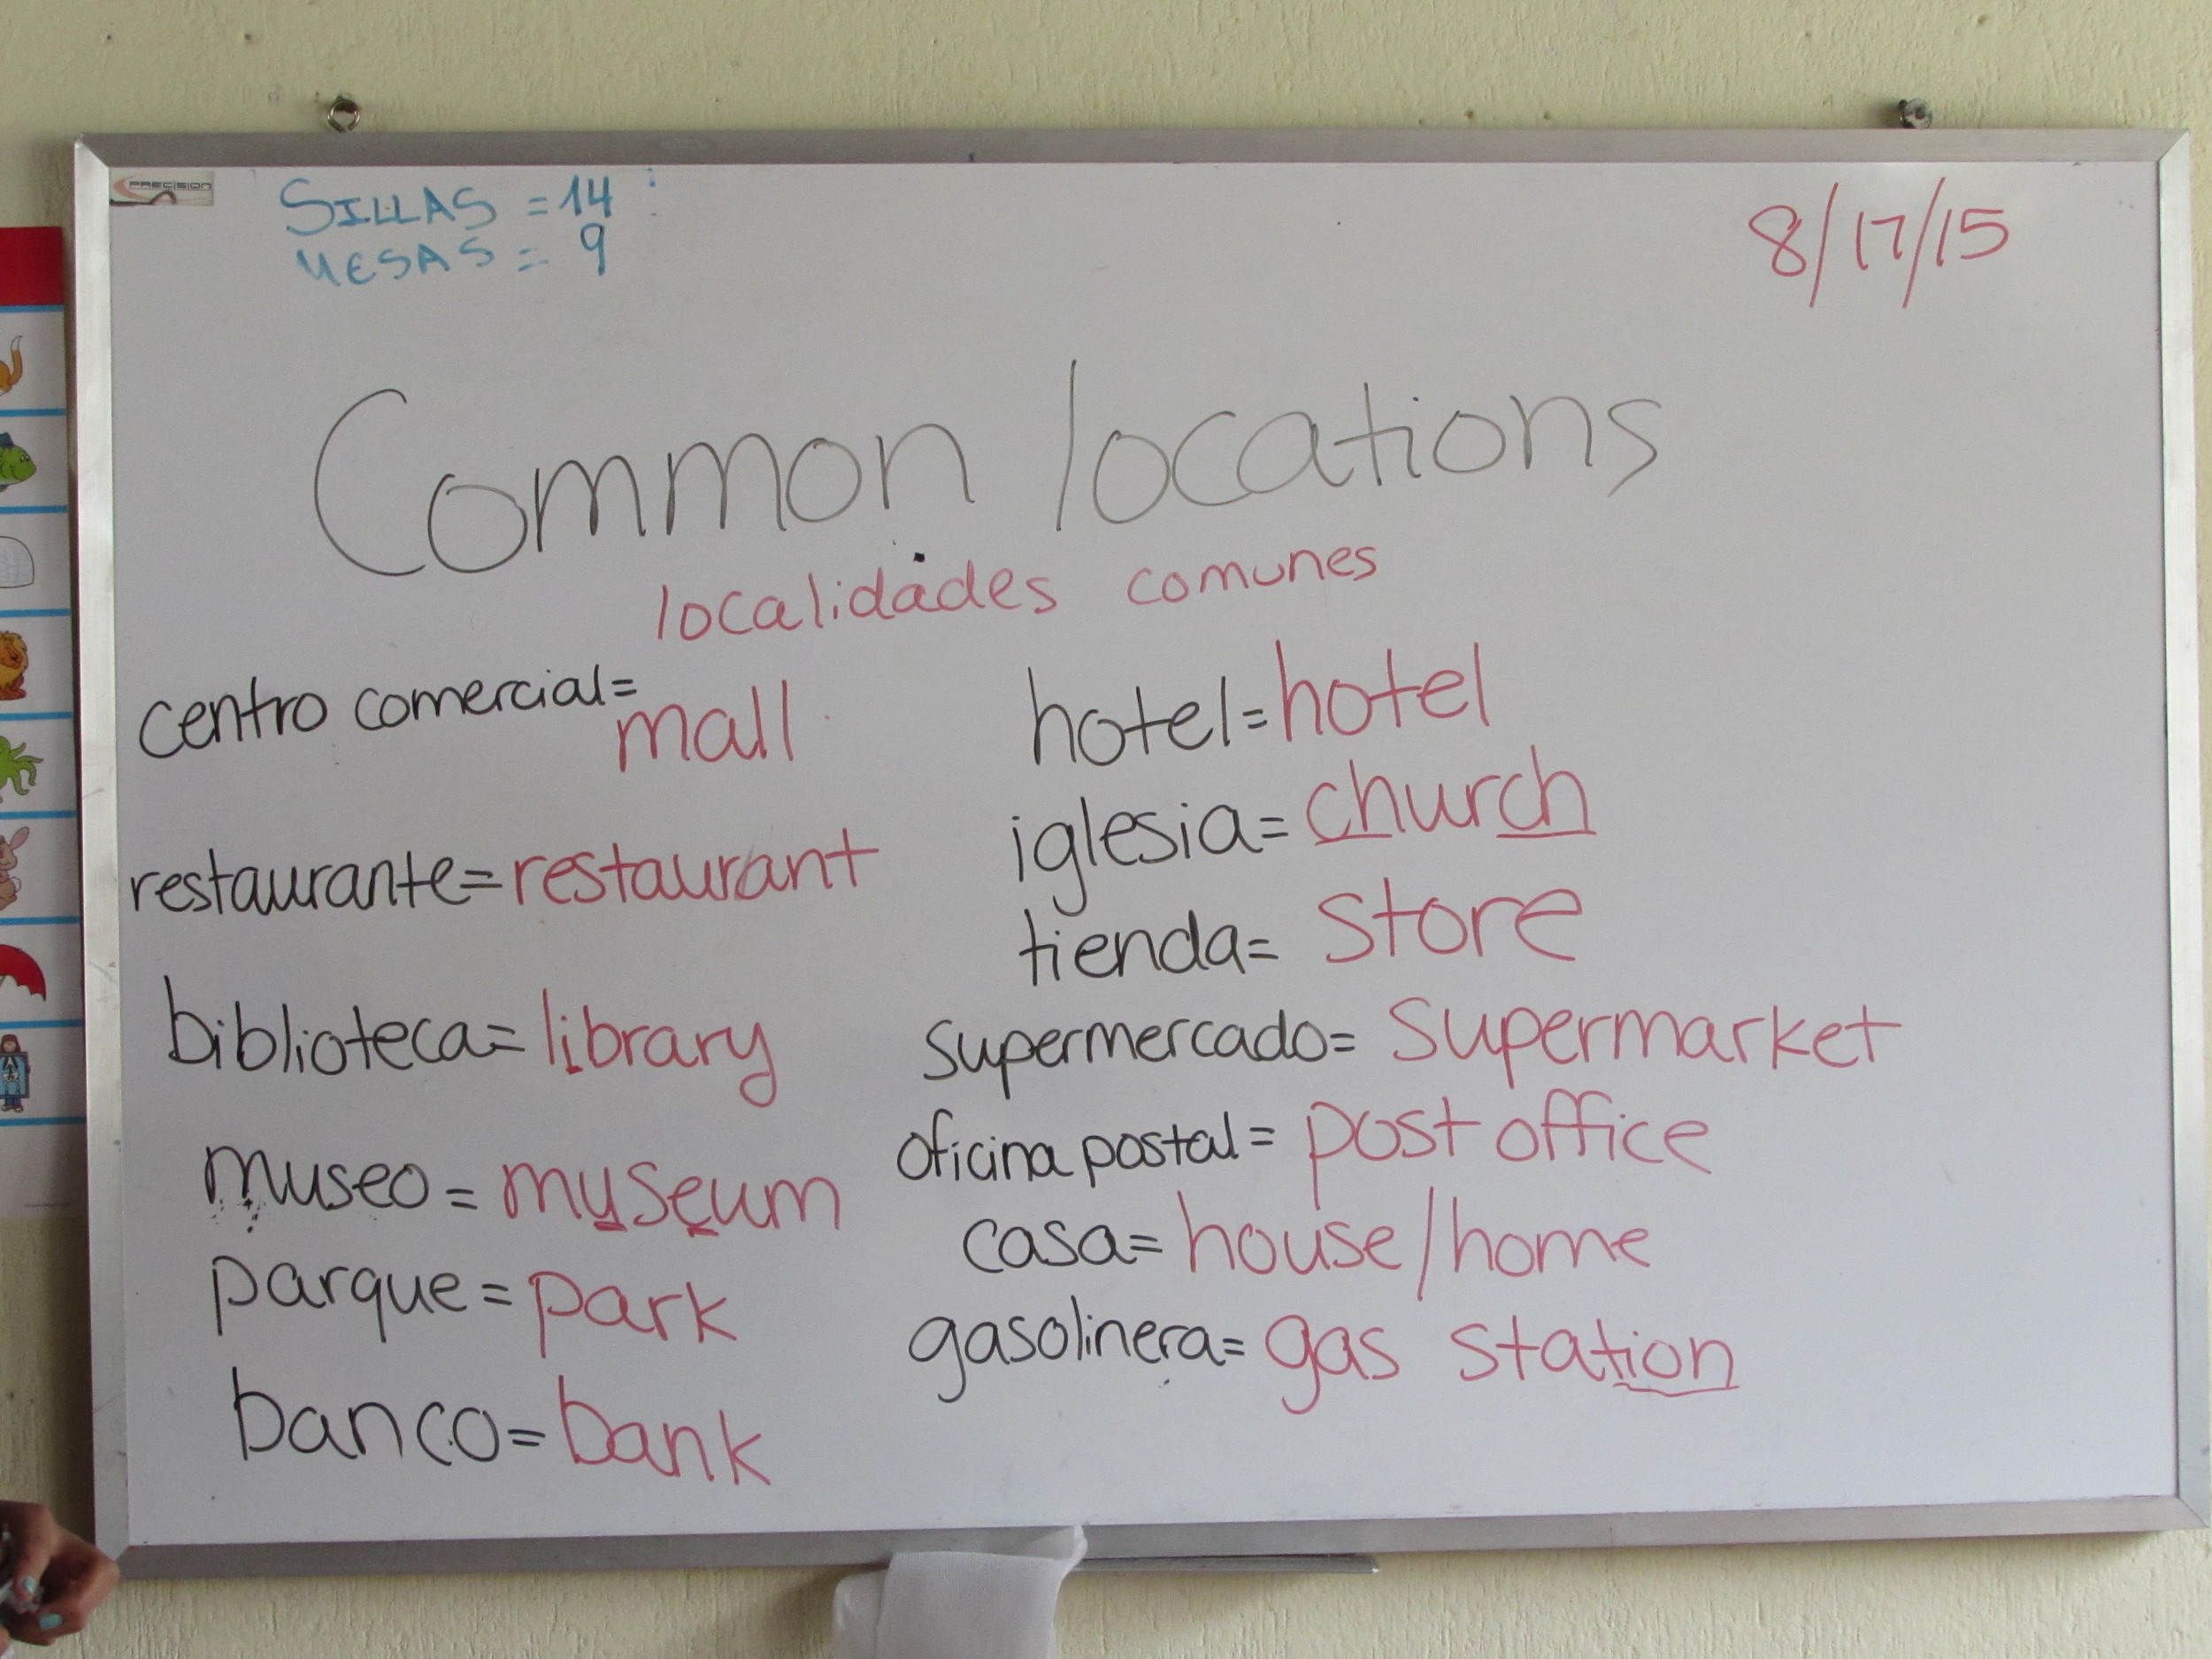 PRECISION
SILLAS = 14
MESAS = 9
8/17/15
Common locations
localidades comunes
centro comercial= mall
restaurante= restaurant
biblioteca= library
museo = museum
parque = park
banco= bank
hotel= hotel
iglesia= church
tienda= store
supermercado= supermarket
oficina postal= post office
casa= house/home
gasolinera= gas station